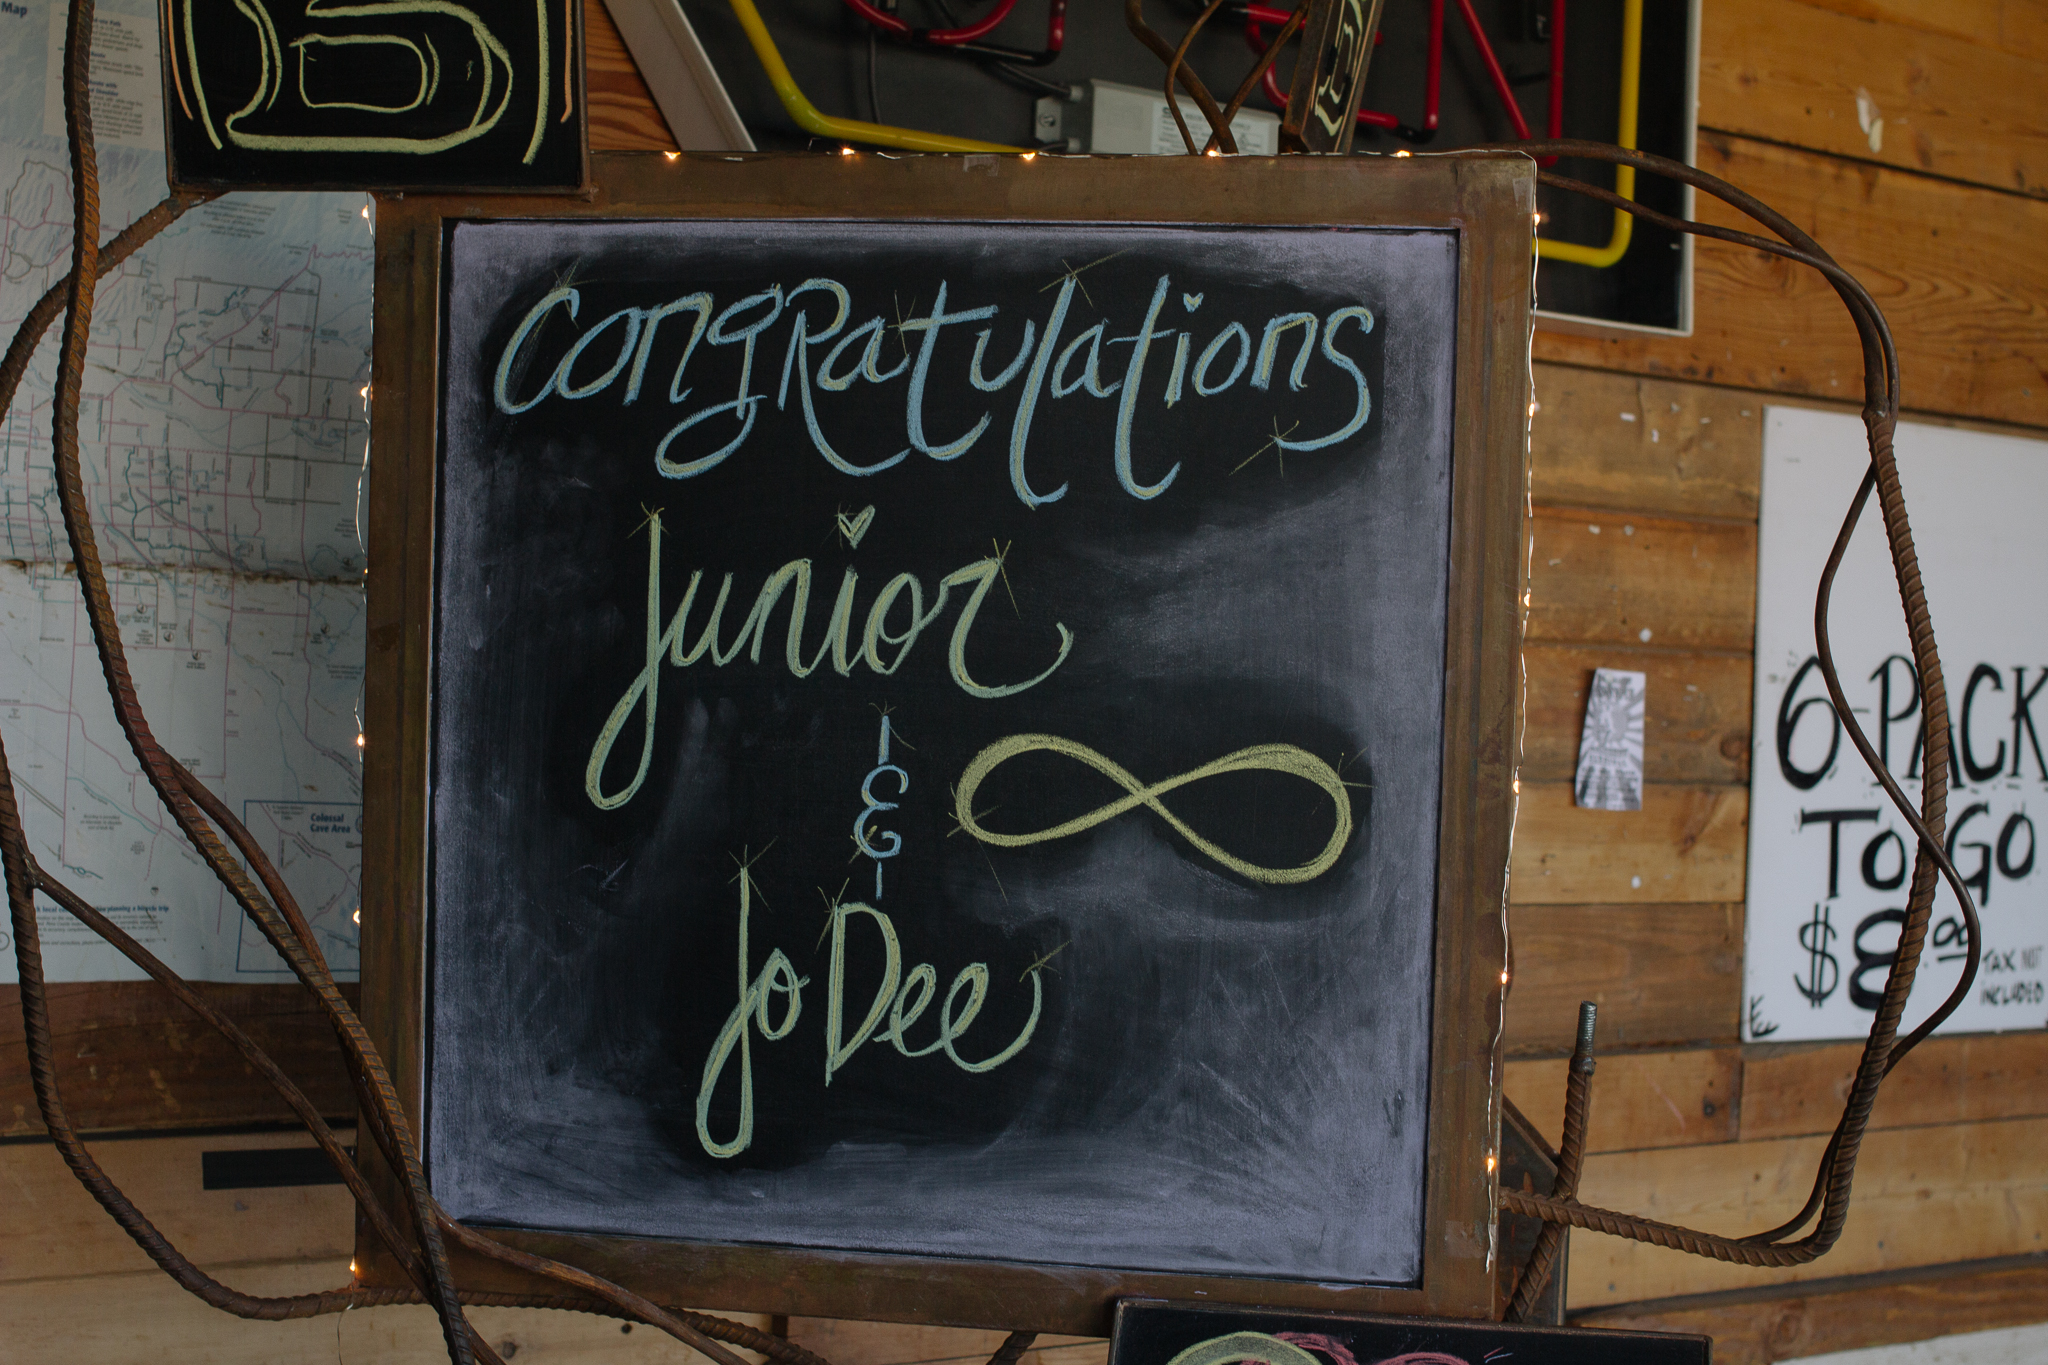 Map
Congratulations
Junior
&
JoDee
Colossal
Cave Area
6-PACK
TO GO
$8.00
TAX NOT
INCLUDED